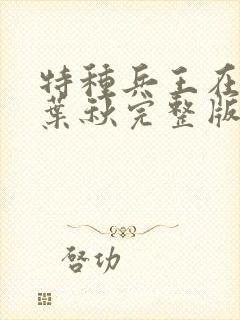 特種兵王在
葉秋完整版
啓功